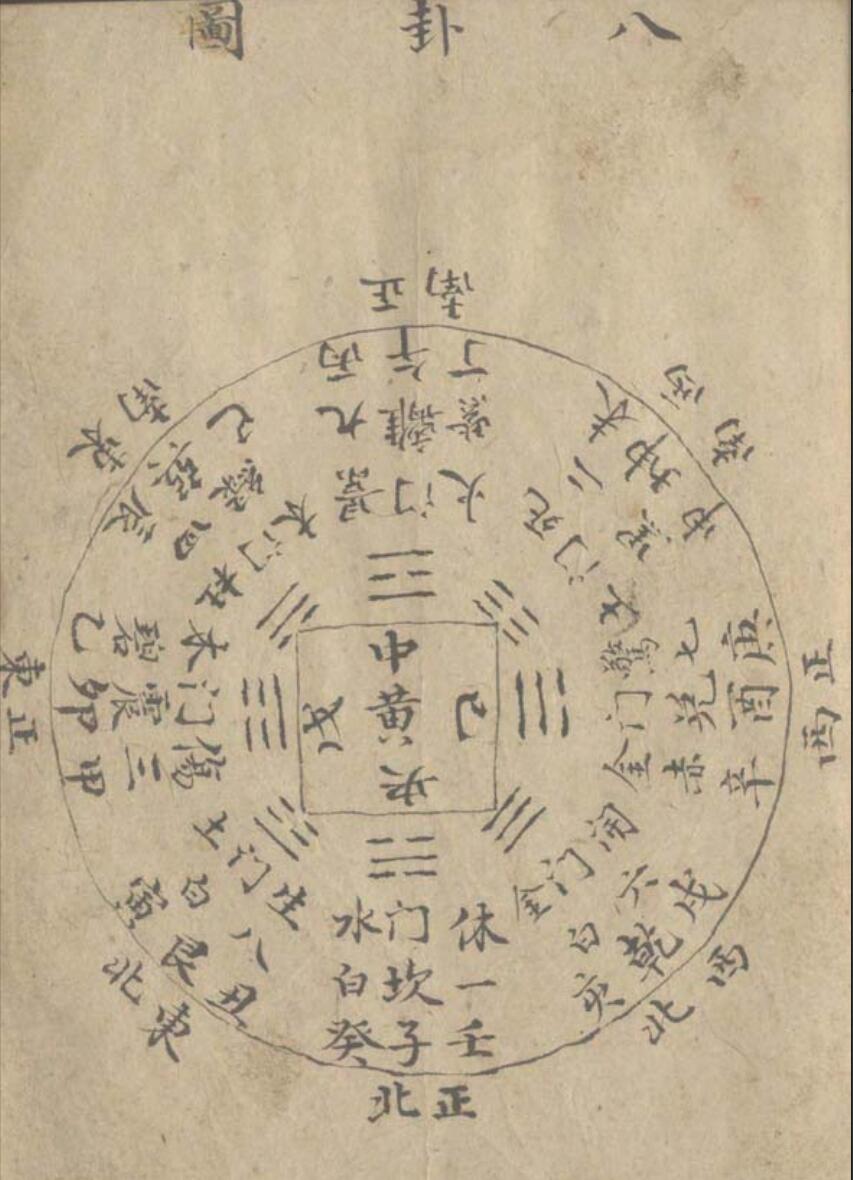 八卦圖
正南
丙午丁
九離紫
景门火
西南
未坤申
二黑
死门土
正西
庚酉辛
七兌赤
驚门金
西北
戌乾亥
六白
開门金
正北
壬子癸
一坎白
休门水
東北
丑艮寅
八白
生门土
正東
甲卯乙
三震碧
傷门木
東南
辰巽巳
四綠
杜门木
中黄央
戊
己